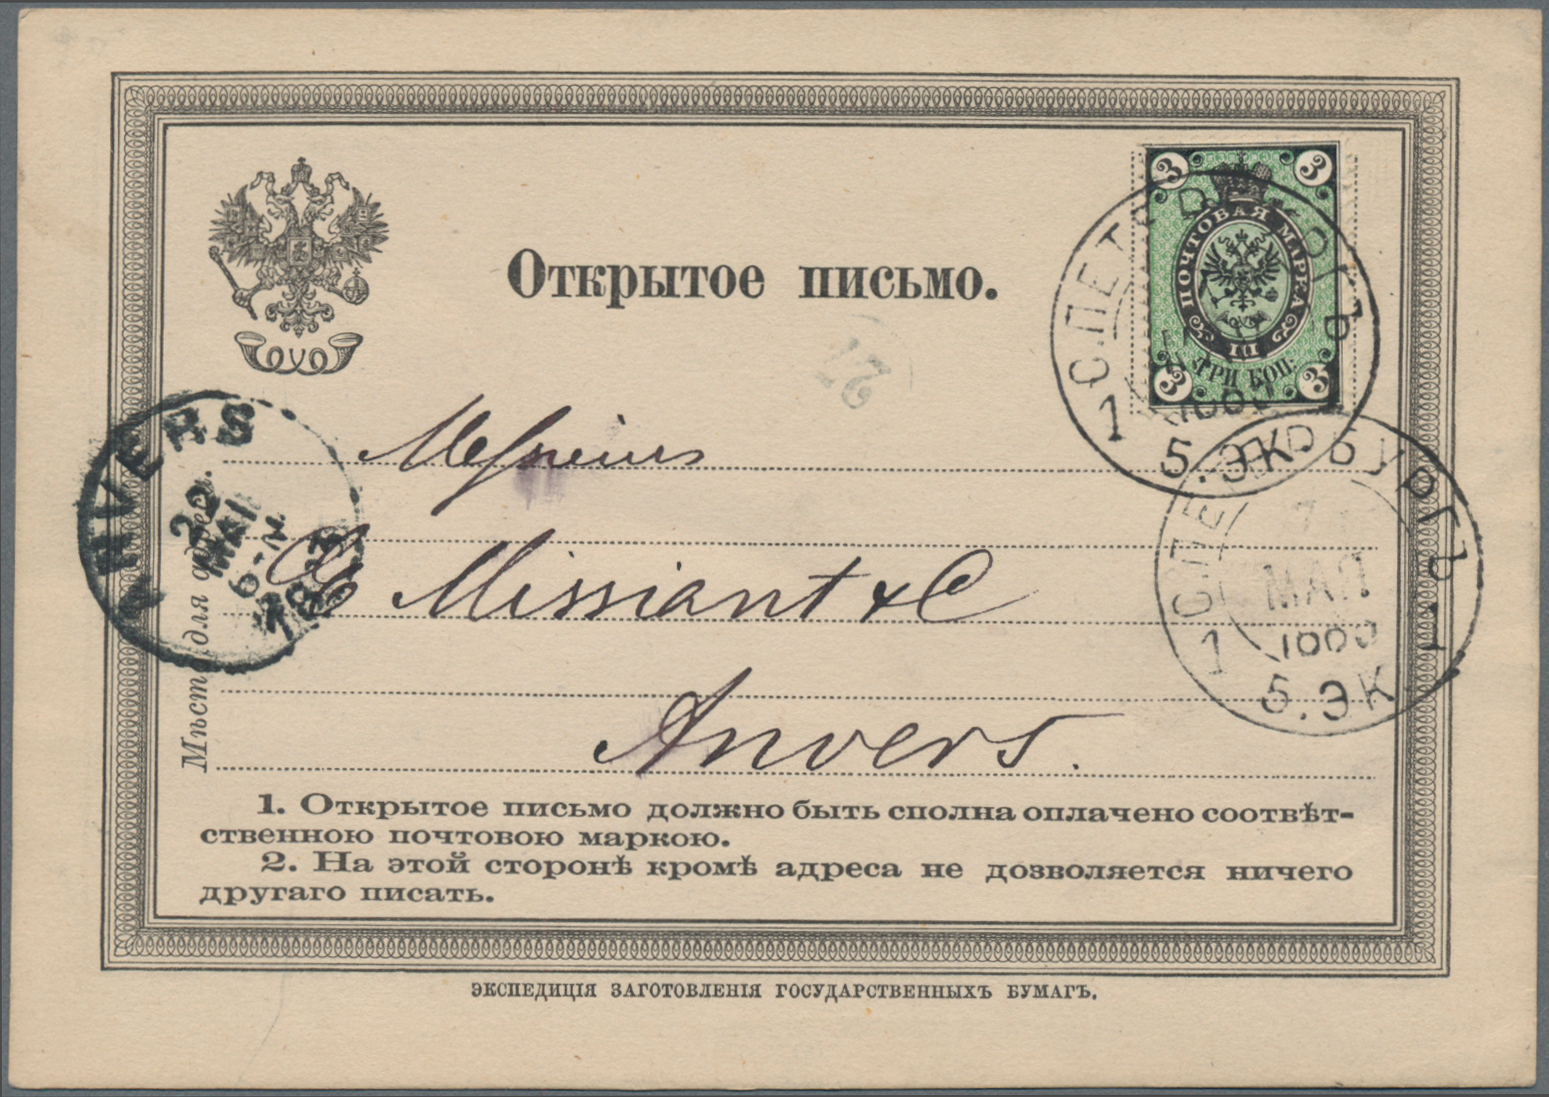 Открытое письмо.
3 3
ПОЧТОВАЯ МАРКА
ТРИ КОП.
3 3
С.ПЕТЕРБУРГЪ
1
5.ЭК
С.ПЕТЕРБУРГЪ
7
МАЯ
1 1
5.ЭК
27
ANVERS
22
MAI
6-N
Messieurs
Missiant & C
Anvers.
Мѣсто для адреса.
1. Открытое письмо должно быть сполна оплачено соотвѣт-
ственною почтовою маркою.
2. На этой сторонѣ кромѣ адреса не дозволяется ничего
другаго писать.
ЭКСПЕДИЦІЯ ЗАГОТОВЛЕНІЯ ГОСУДАРСТВЕННЫХЪ БУМАГЪ.